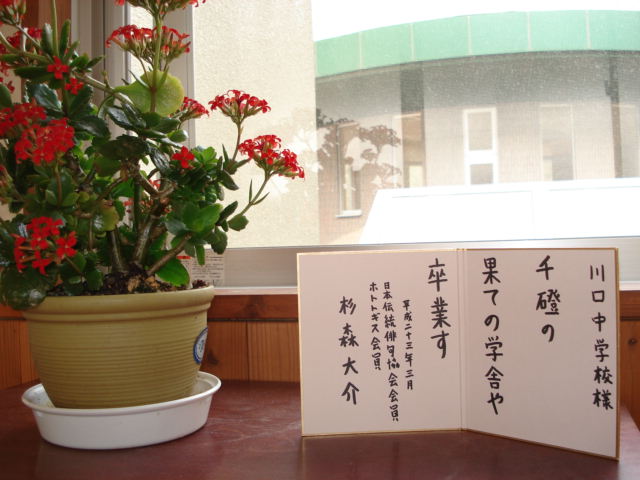 川口中学校様
千磴の
果ての学舎や
卒業す
平成二十三年三月
日本伝統俳句協会会員
ホトトギス会員
杉森大介